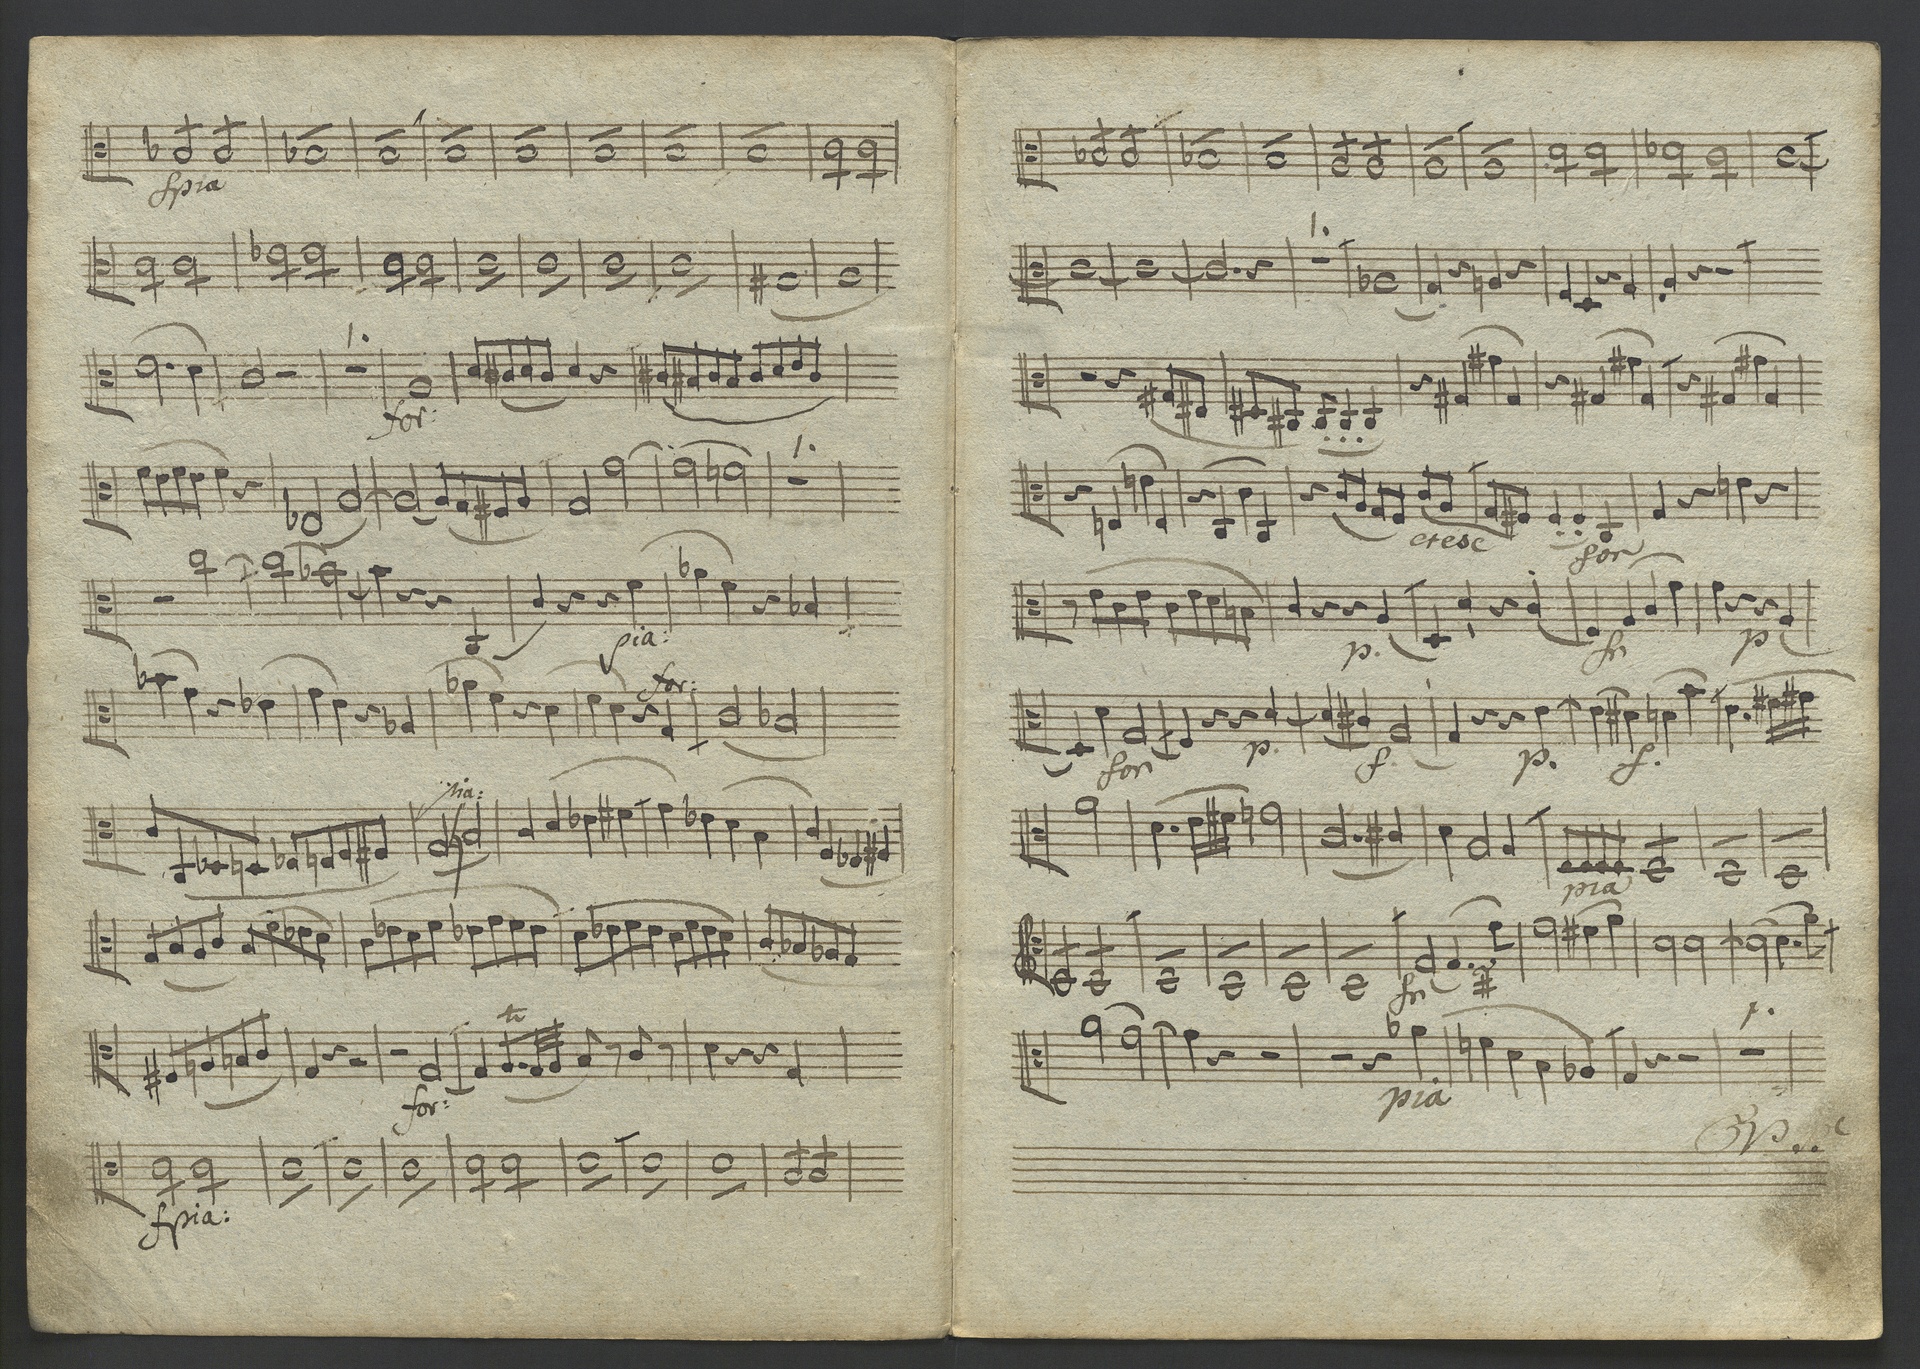 fpia
1.
for:
1.
pia:
for:
pia:
tr
for:
fpia:
1.
cresc
for
p.
fr
p
for
p.
f.
p.
f.
pia
fr
1.
pia